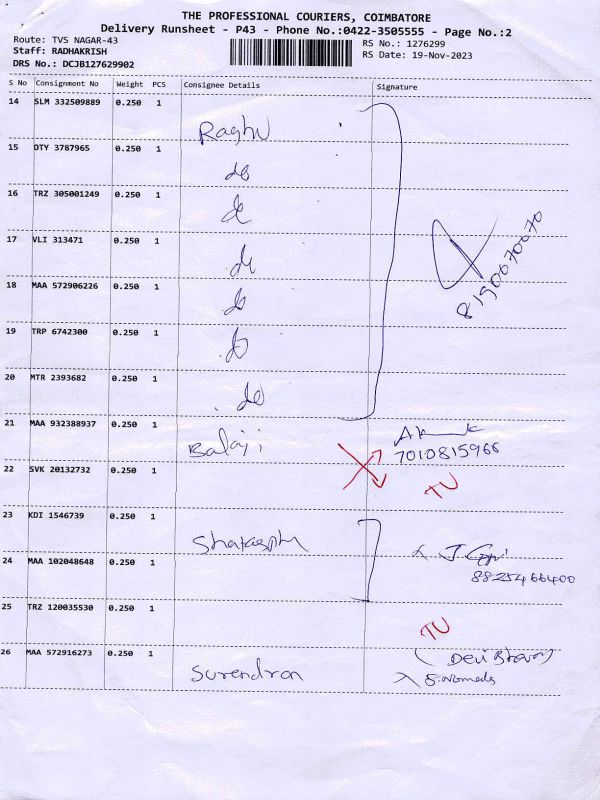 THE PROFESSIONAL COURIERS, COIMBATORE
Delivery Runsheet - P43 - Phone No.:0422-3505555 - Page No.:2
Route: TVS NAGAR-43
RS No.: 1276299
Staff: RADHAKRISH
RS Date: 19-Nov-2023
DRS No.: DCJB127629902
S No Consignment No Weight PCS Consignee Details Signature
14 SLM 332509889 0.250 1
Raghu
15 OTY 3787965 0.250 1
do
16 TRZ 305001249 0.250 1
do
17 VLI 313471 0.250 1
do
8190670070
18 MAA 572906226 0.250 1
do
19 TRP 6742300 0.250 1
do
20 MTR 2393682 0.250 1
do
21 MAA 932388937 0.250 1
Balaji
7010815966
22 SVK 20132732 0.250 1
TU
23 KDI 1546739 0.250 1
24 MAA 102048648 0.250 1
8825466400
25 TRZ 120035530 0.250 1
TU
26 MAA 572916273 0.250 1
Surendran